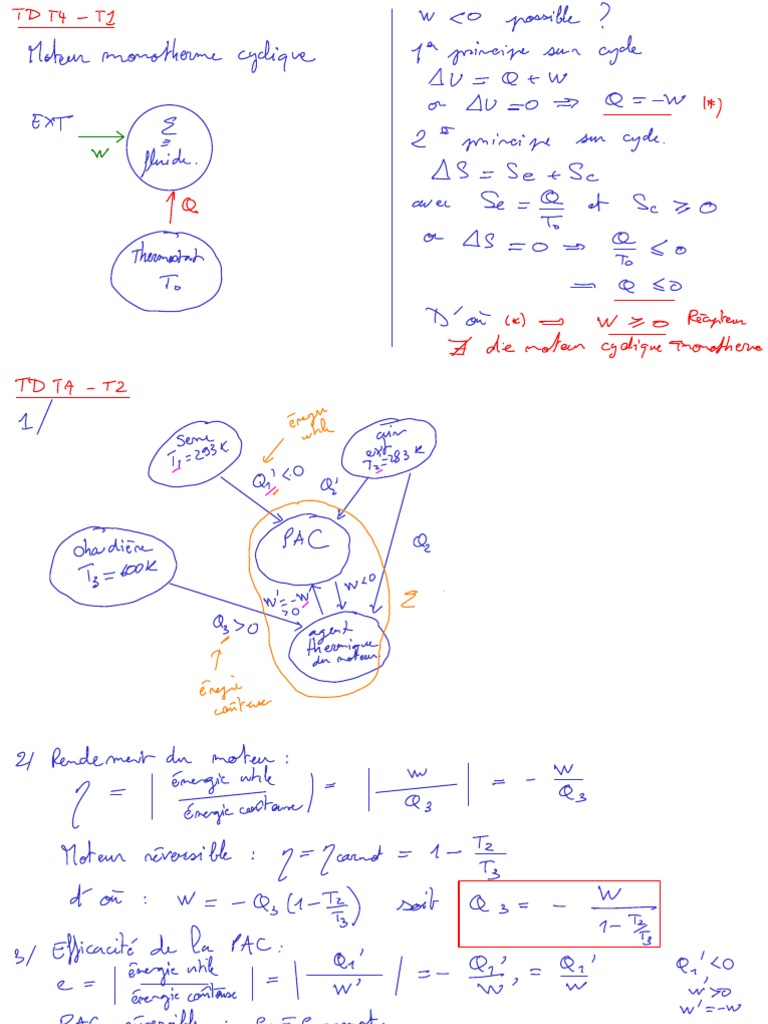 TD T4 - T1
Moteur monotherme cyclique
EXT
W
Σ
fluide.
Q
Thermostat
T₀
W < 0 possible ?
1er principe sur cycle
ΔU = Q + W
or ΔU = 0 ⇒ Q = -W (*)
2e principe sur cycle.
ΔS = Se + Sc
avec Se = Q/T₀ et Sc ⩾ 0
or ΔS = 0 ⇒ Q/T₀ ⩽ 0
⇒ Q ⩽ 0
D'où (*) ⇒ W ⩾ 0 Récepteur
∄ de moteur cyclique monotherme
TD T4 - T2
1/
Serre
T₁ = 293 K
énergie
utile
Q₁' < 0
Q₂'
air
ext
T₂ = 283 K
PAC
Chaudière
T₃ = 600 K
Q₂
W' = -W
> 0
W < 0
Σ
Q₃ > 0
agent
thermique
du moteur
énergie
coûteuse
2/ Rendement du moteur :
η = | énergie utile / énergie coûteuse | = | W / Q₃ | = - W / Q₃
Moteur réversible : η = η carnot = 1 - T₂/T₃
d'où : W = - Q₃ (1 - T₂/T₃) soit Q₃ = - W / (1 - T₂/T₃)
3/ Efficacité de la PAC :
e = | énergie utile / énergie coûteuse | = | Q₁' / W' | = - Q₁' / W' = Q₁' / W
Q₁' < 0
W' > 0
W' = -W
PAC réversible :